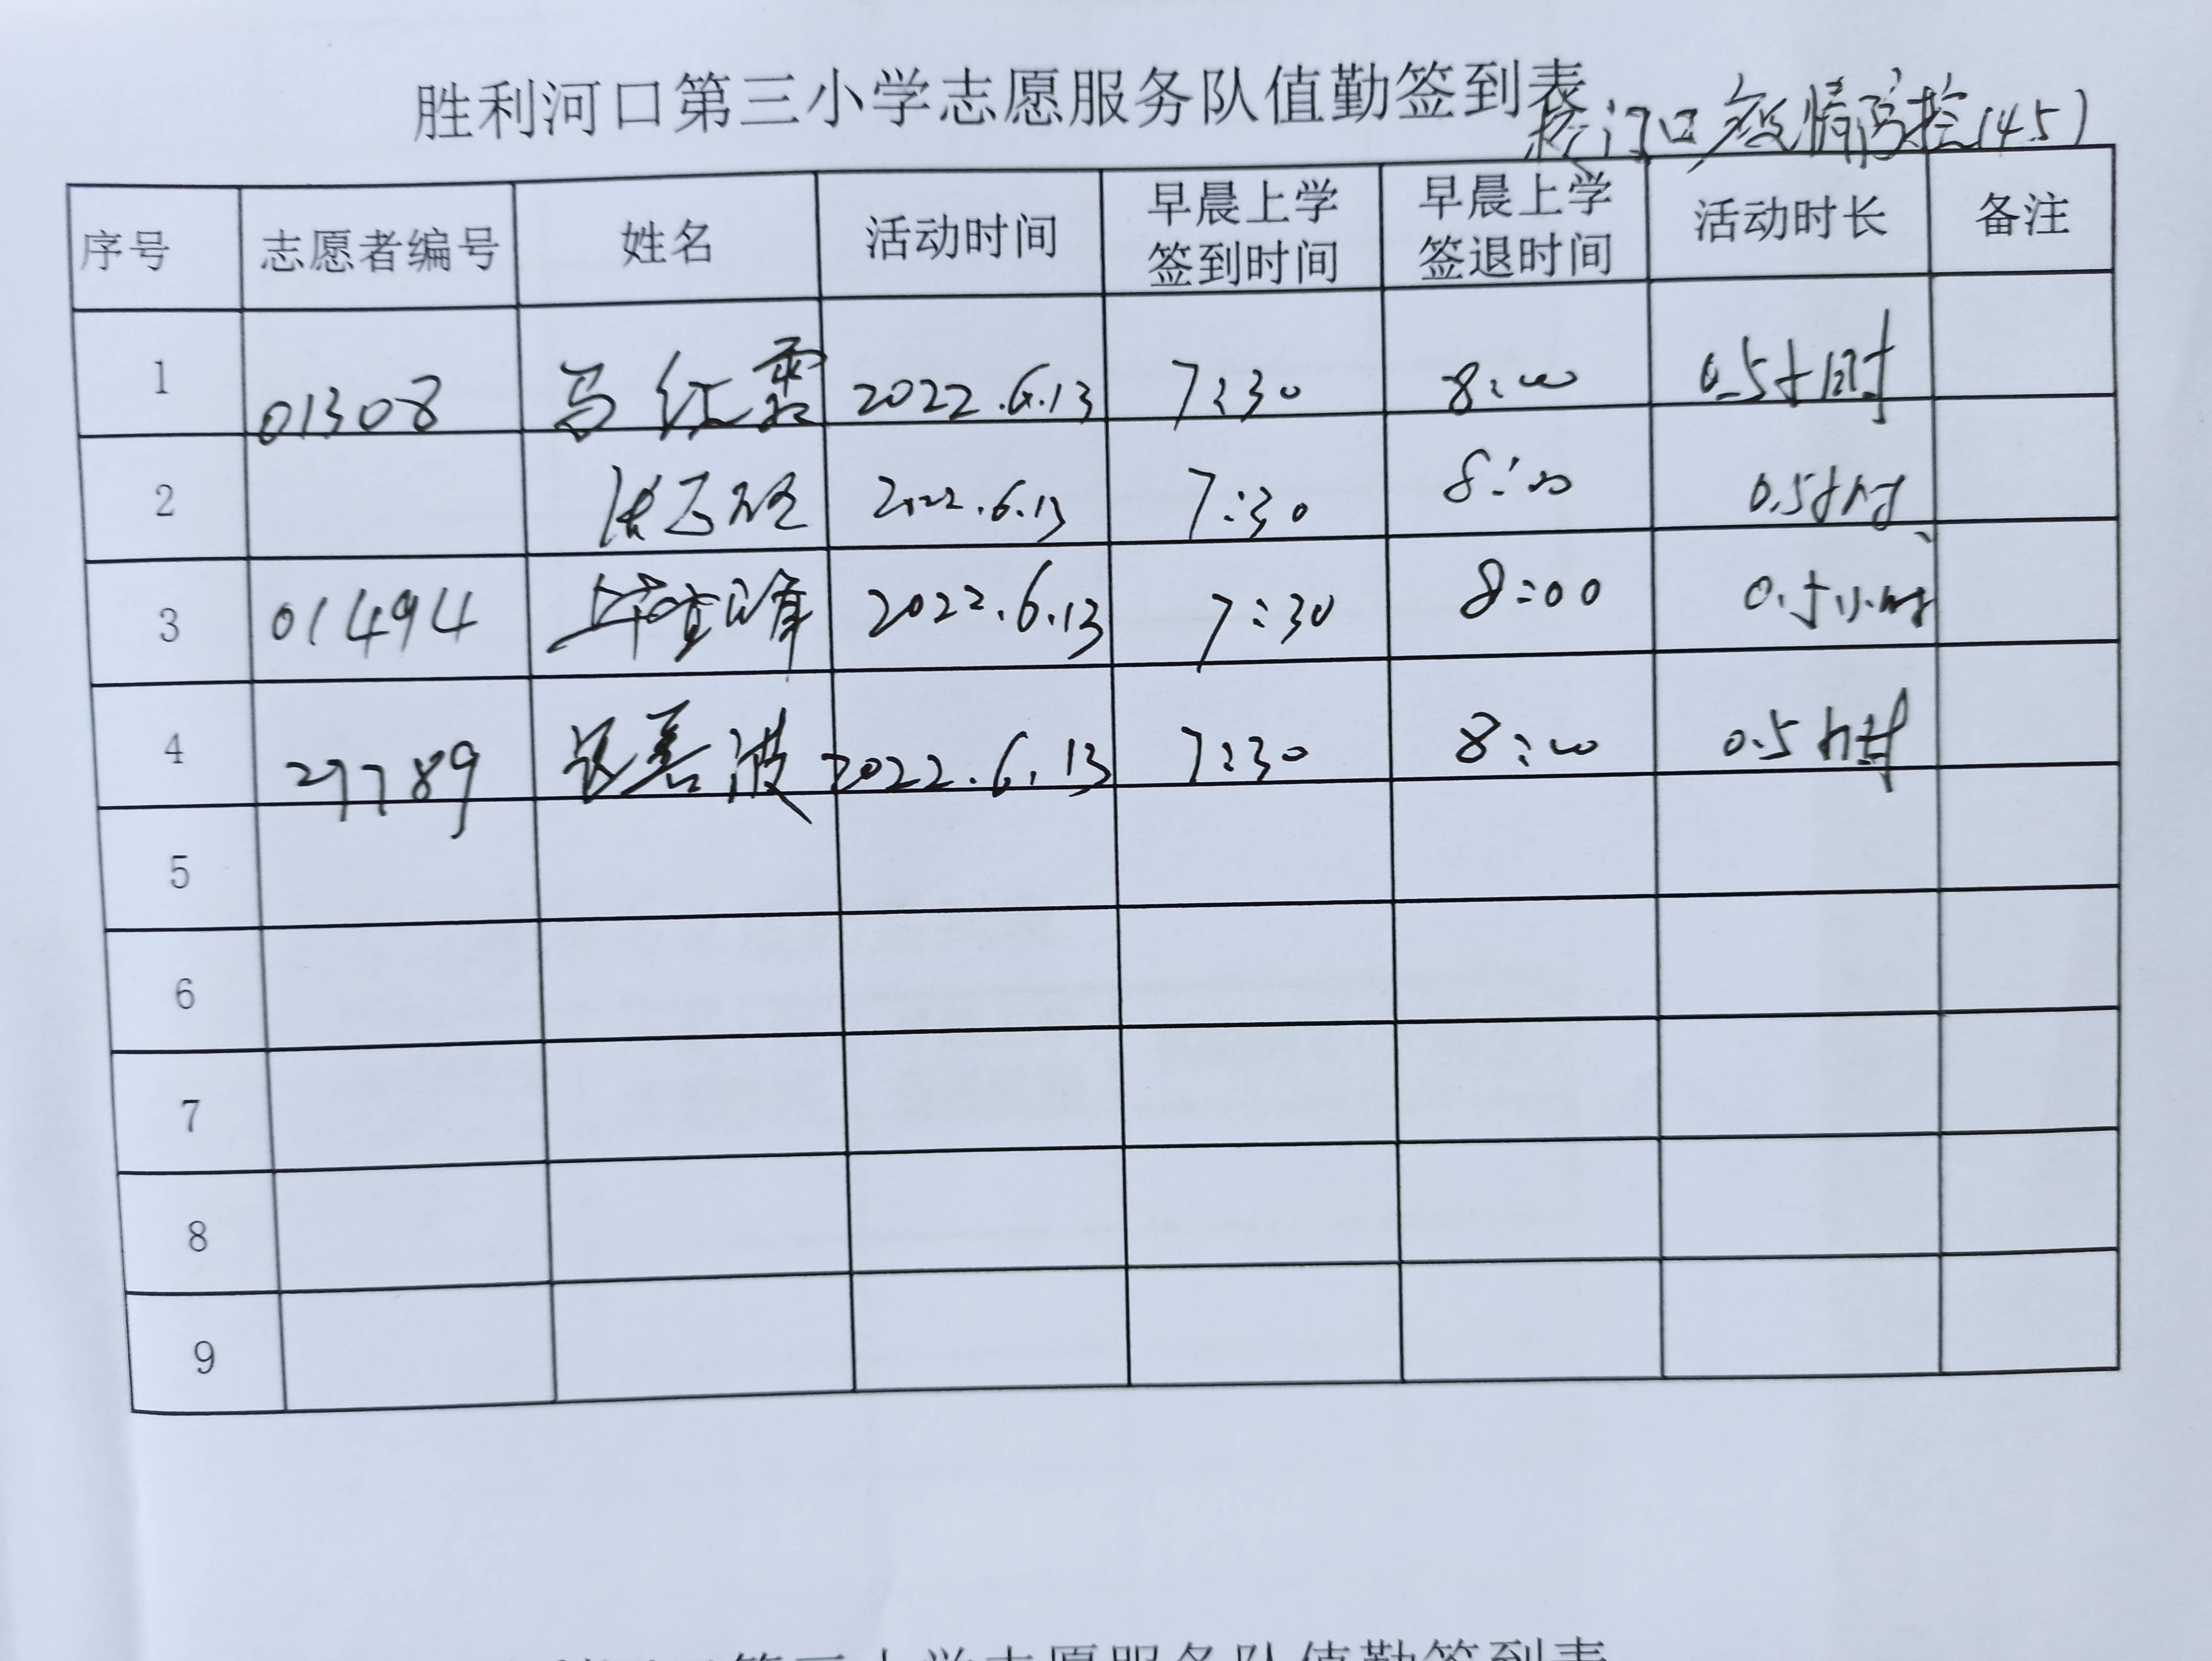 胜利河口第三小学志愿服务队值勤签到表
校门口疫情防控(45)
序号 志愿者编号 姓名 活动时间 早晨上学签到时间 早晨上学签退时间 活动时长 备注
1 01308 马红霞 2022.6.13 7:30 8:00 0.5小时
2 2022.6.13 7:30 8:00 0.5小时
3 01494 2022.6.13 7:30 8:00 0.5小时
4 27789 善波 2022.6.13 7:30 8:00 0.5小时
5
6
7
8
9
第三小学志愿服务队值勤签到表